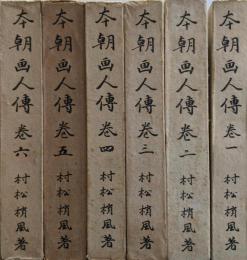 本朝画人傳 巻一 村松梢風著
本朝画人傳 巻二 村松梢風著
本朝画人傳 巻三 村松梢風著
本朝画人傳 巻四 村松梢風著
本朝画人傳 巻五 村松梢風著
本朝画人傳 巻六 村松梢風著